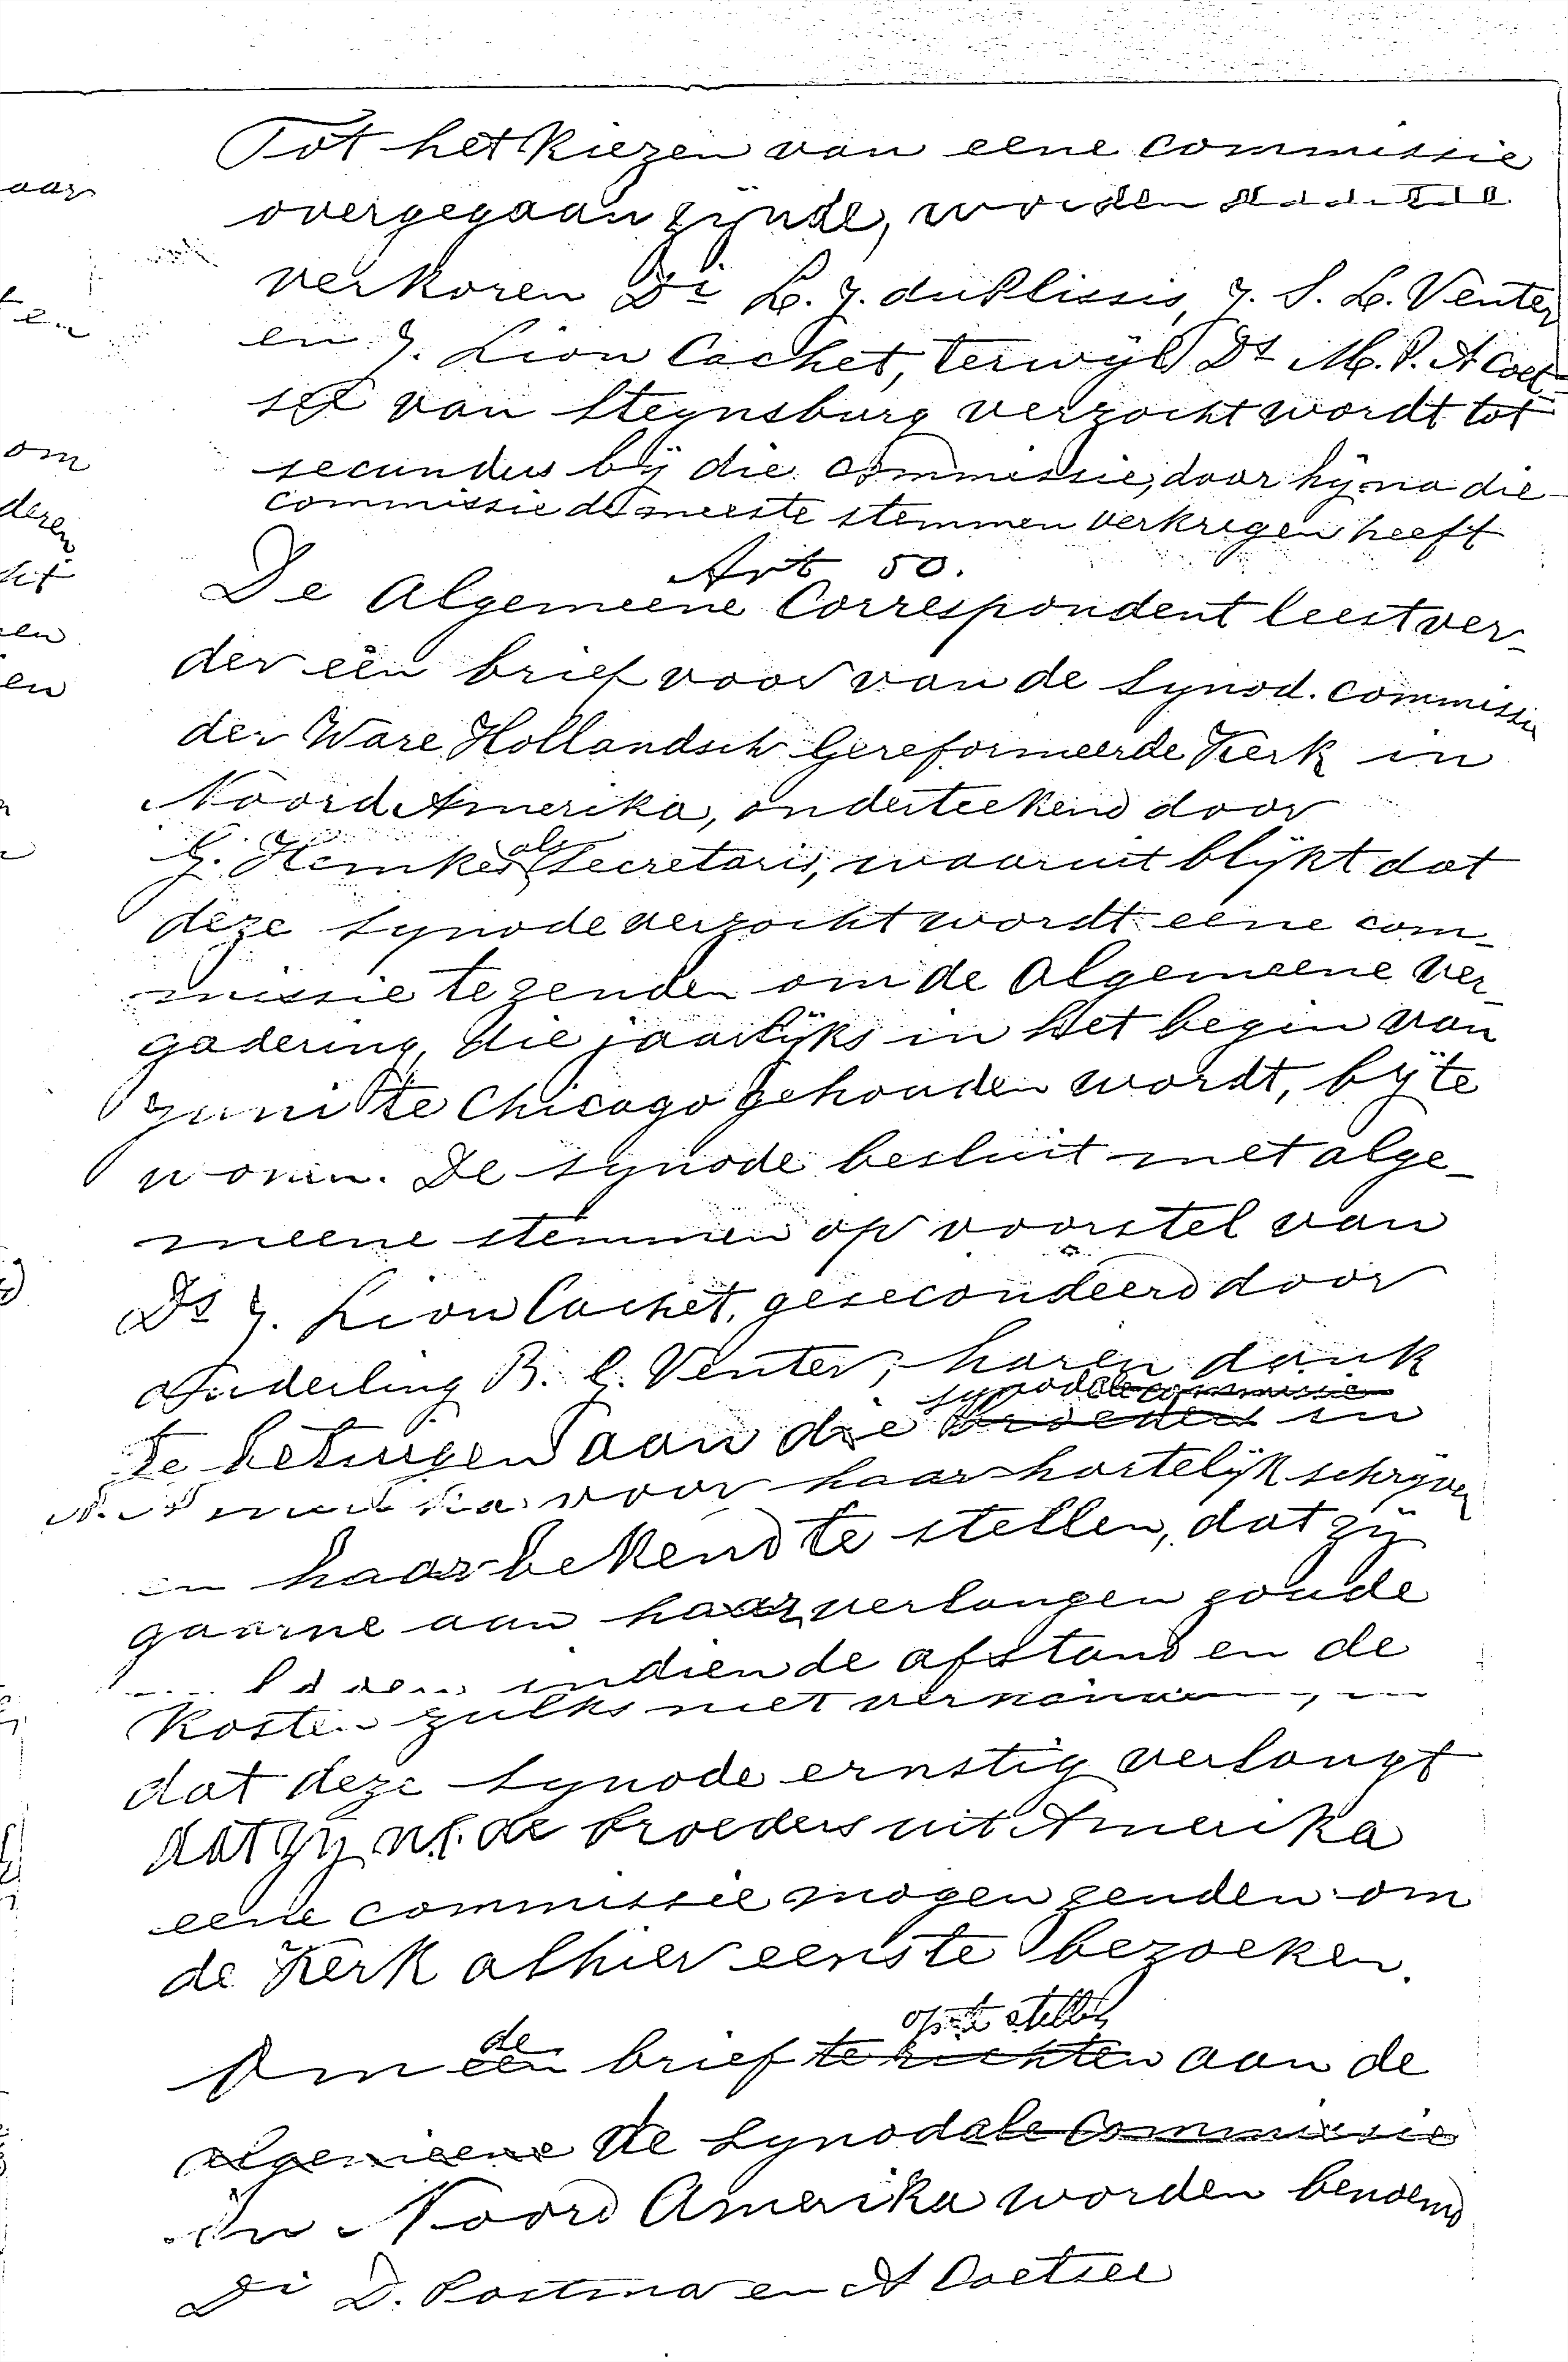 Tot het kiezen van eene commissie
overgegaan zijnde, worden
verkoren Di L. J. du Plissis, J. S. L. Venter
en J. Lion Cachet, terwijl Ds M. P. A Coet-
see van Steynsburg verzocht wordt tot
secundus bij die commissie, daar hij na die
commissie de meeste stemmen verkregen heeft
Art 50.
De Algemeene Correspondent leest ver-
der een brief voor van de Synod. commissie
der Ware Hollandsch Gereformeerde Kerk in
Noord Amerika, onderteekend door
G. Hemkes als Secretaris, waaruit blijkt dat
deze Synode verzocht wordt eene com-
missie te zenden om de Algemeene Ver-
gadering, die jaarlijks in het begin van
Juni te Chicago gehouden wordt, bij te
wonen. De Synode besluit met alge-
meene stemmen op voorstel van
Ds J. Lion Cachet, gesecondeerd door
Ouderling B. G. Venter, haren dank
synodale commissie
te betuigen aan die broeders in
N. Amerika voor haar hartelijk schrijven
en haar bekend te stellen, dat zij
gaarne aan haar verlangen zoude
indien de afstand en de
kosten zulks niet
dat deze Synode ernstig verlangt
dat zij nl. de broeders uit Amerika
eene commissie mogen zenden om
de Kerk alhier eens te bezoeken.
de op te stellen
Om een brief te richten aan de
algemeene de Synodale Commissie
in Noord Amerika worden benoemd
Di D. Postma en A Coetsee
aar
ten
om
deren
en
en